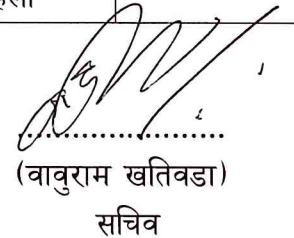 ..............................
(वावुराम खतिवडा)
सचिव